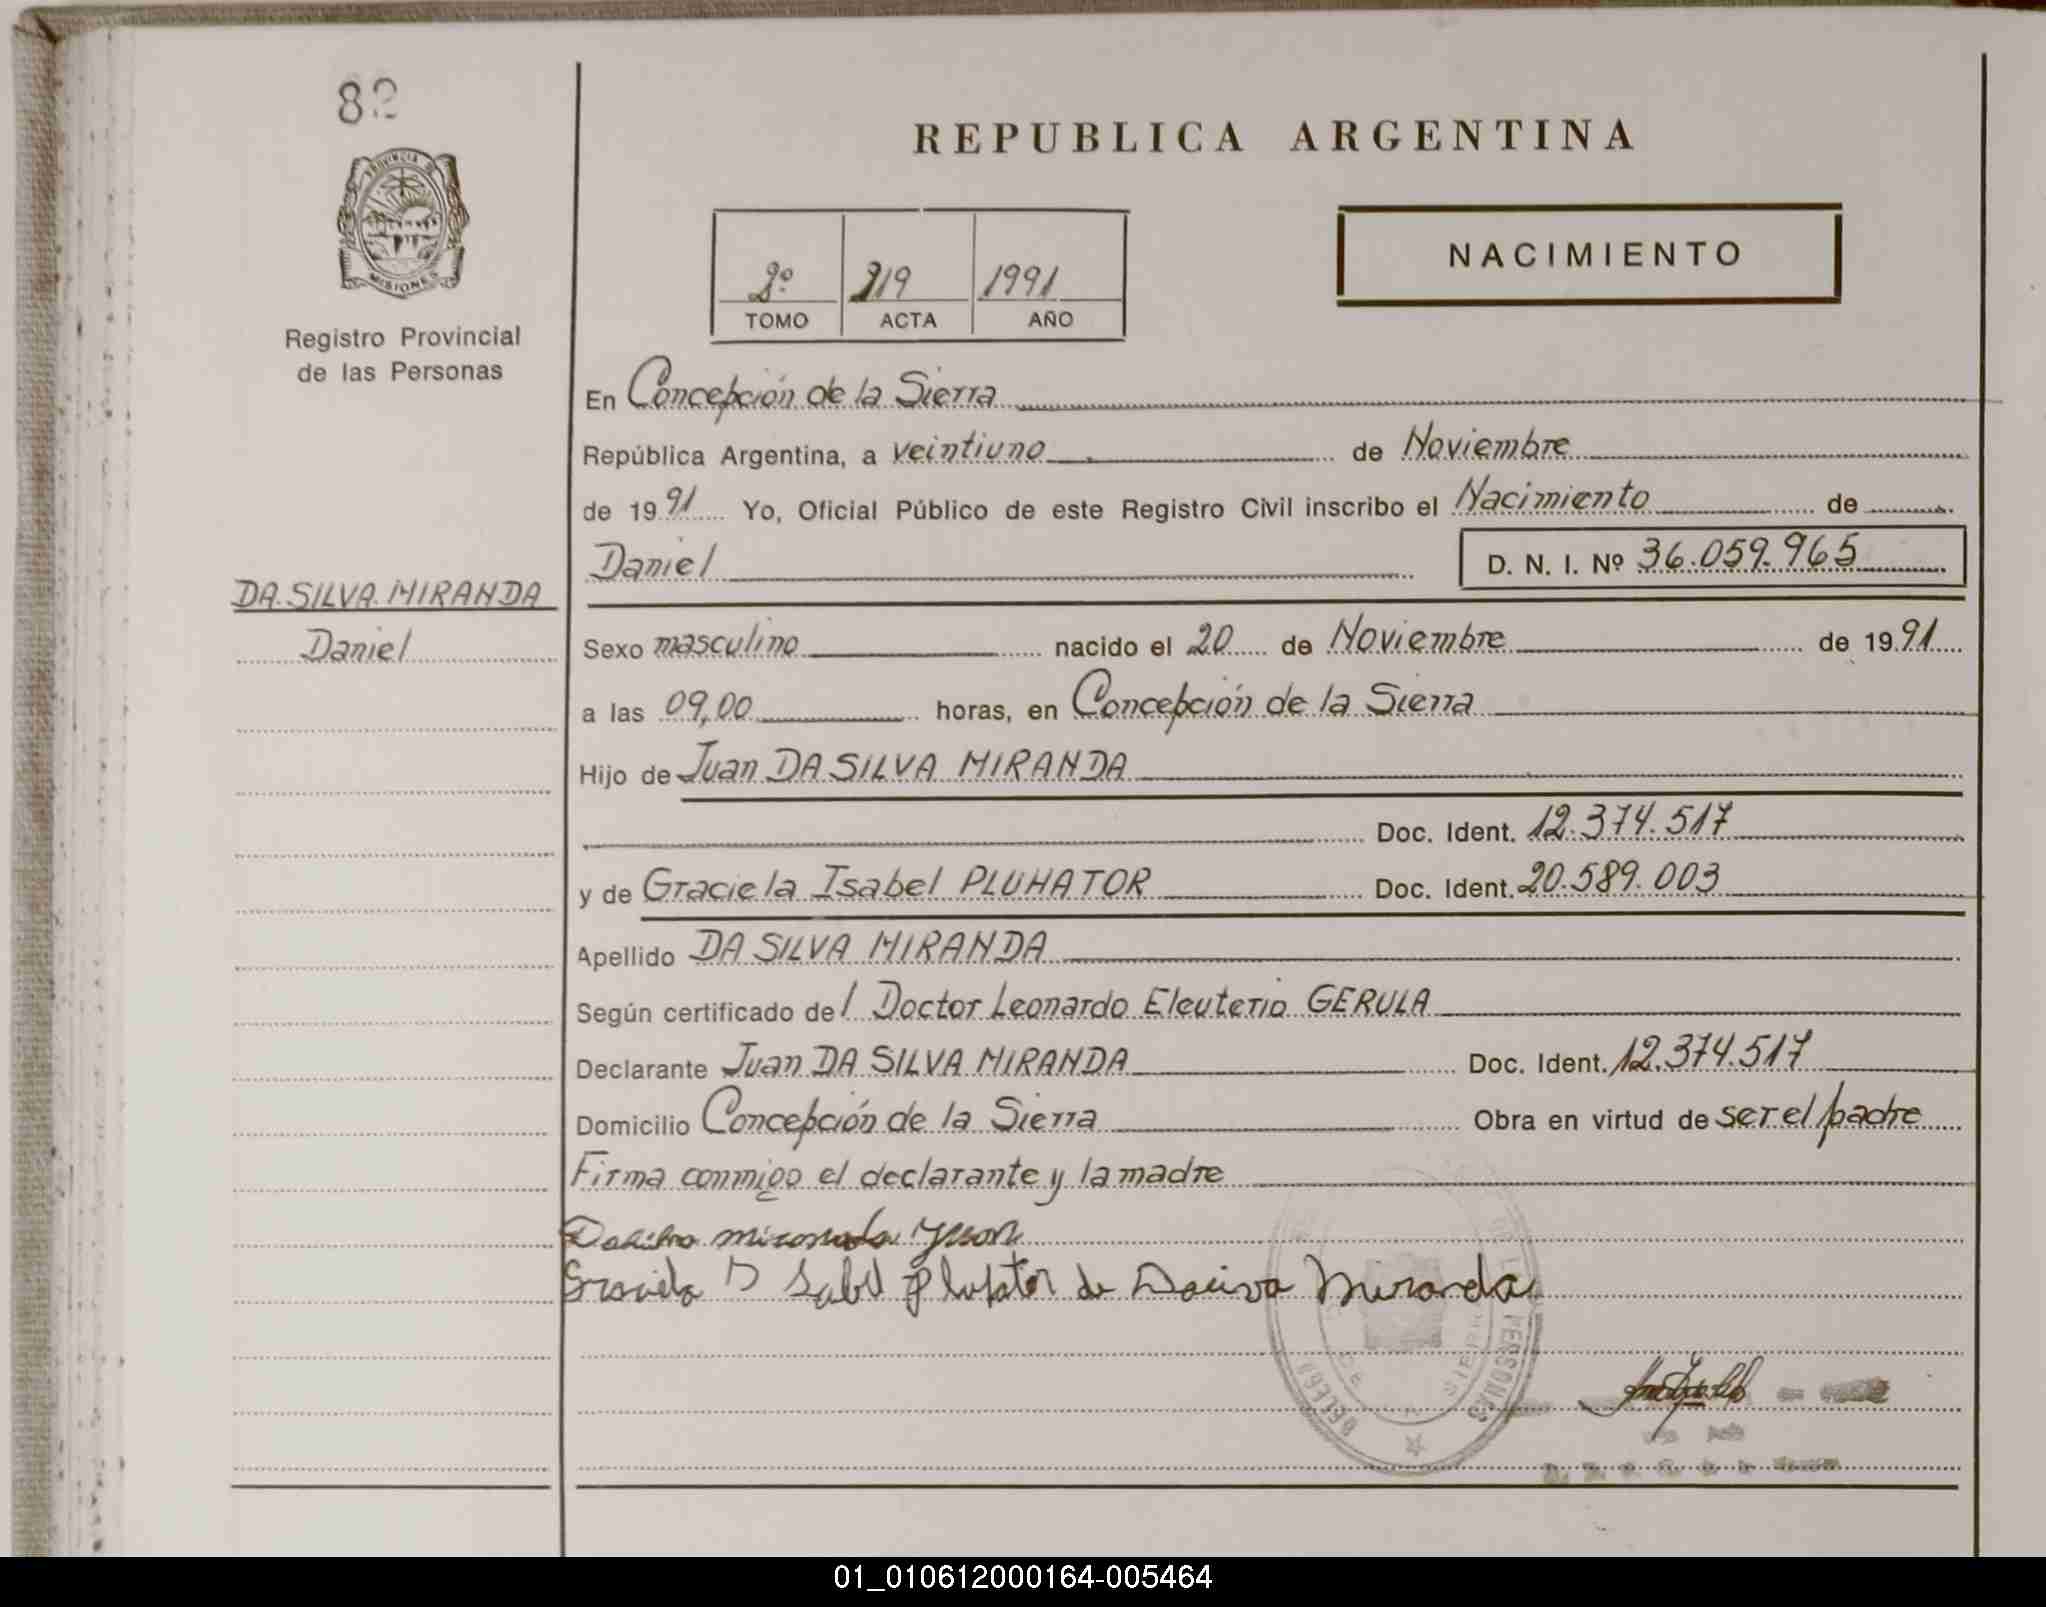 82
PROVINCIA DE
MISIONES
Registro Provincial
de las Personas
REPUBLICA ARGENTINA
2º 219 1991
TOMO ACTA AÑO
NACIMIENTO
En Concepción de la Sierra
República Argentina, a veintiuno de Noviembre
de 1991 Yo, Oficial Público de este Registro Civil inscribo el Nacimiento de
Daniel D. N. I. Nº 36.059.965
DA SILVA MIRANDA
Daniel
Sexo masculino nacido el 20 de Noviembre de 1991
a las 09,00 horas, en Concepción de la Sierra
Hijo de Juan DA SILVA MIRANDA
Doc. Ident. 12.374.517
y de Graciela Isabel PLUHATOR Doc. Ident. 20.589.003
Apellido DA SILVA MIRANDA
Según certificado del Doctor Leonardo Eleuterio GERULA
Declarante Juan DA SILVA MIRANDA Doc. Ident. 12.374.517
Domicilio Concepción de la Sierra Obra en virtud de ser el padre
Firma conmigo el declarante y la madre
miranda Juan
Graciela Isabel plufator de Daciva Miranda
DE LA SIERRA
PERSONAS
01_010612000164-005464